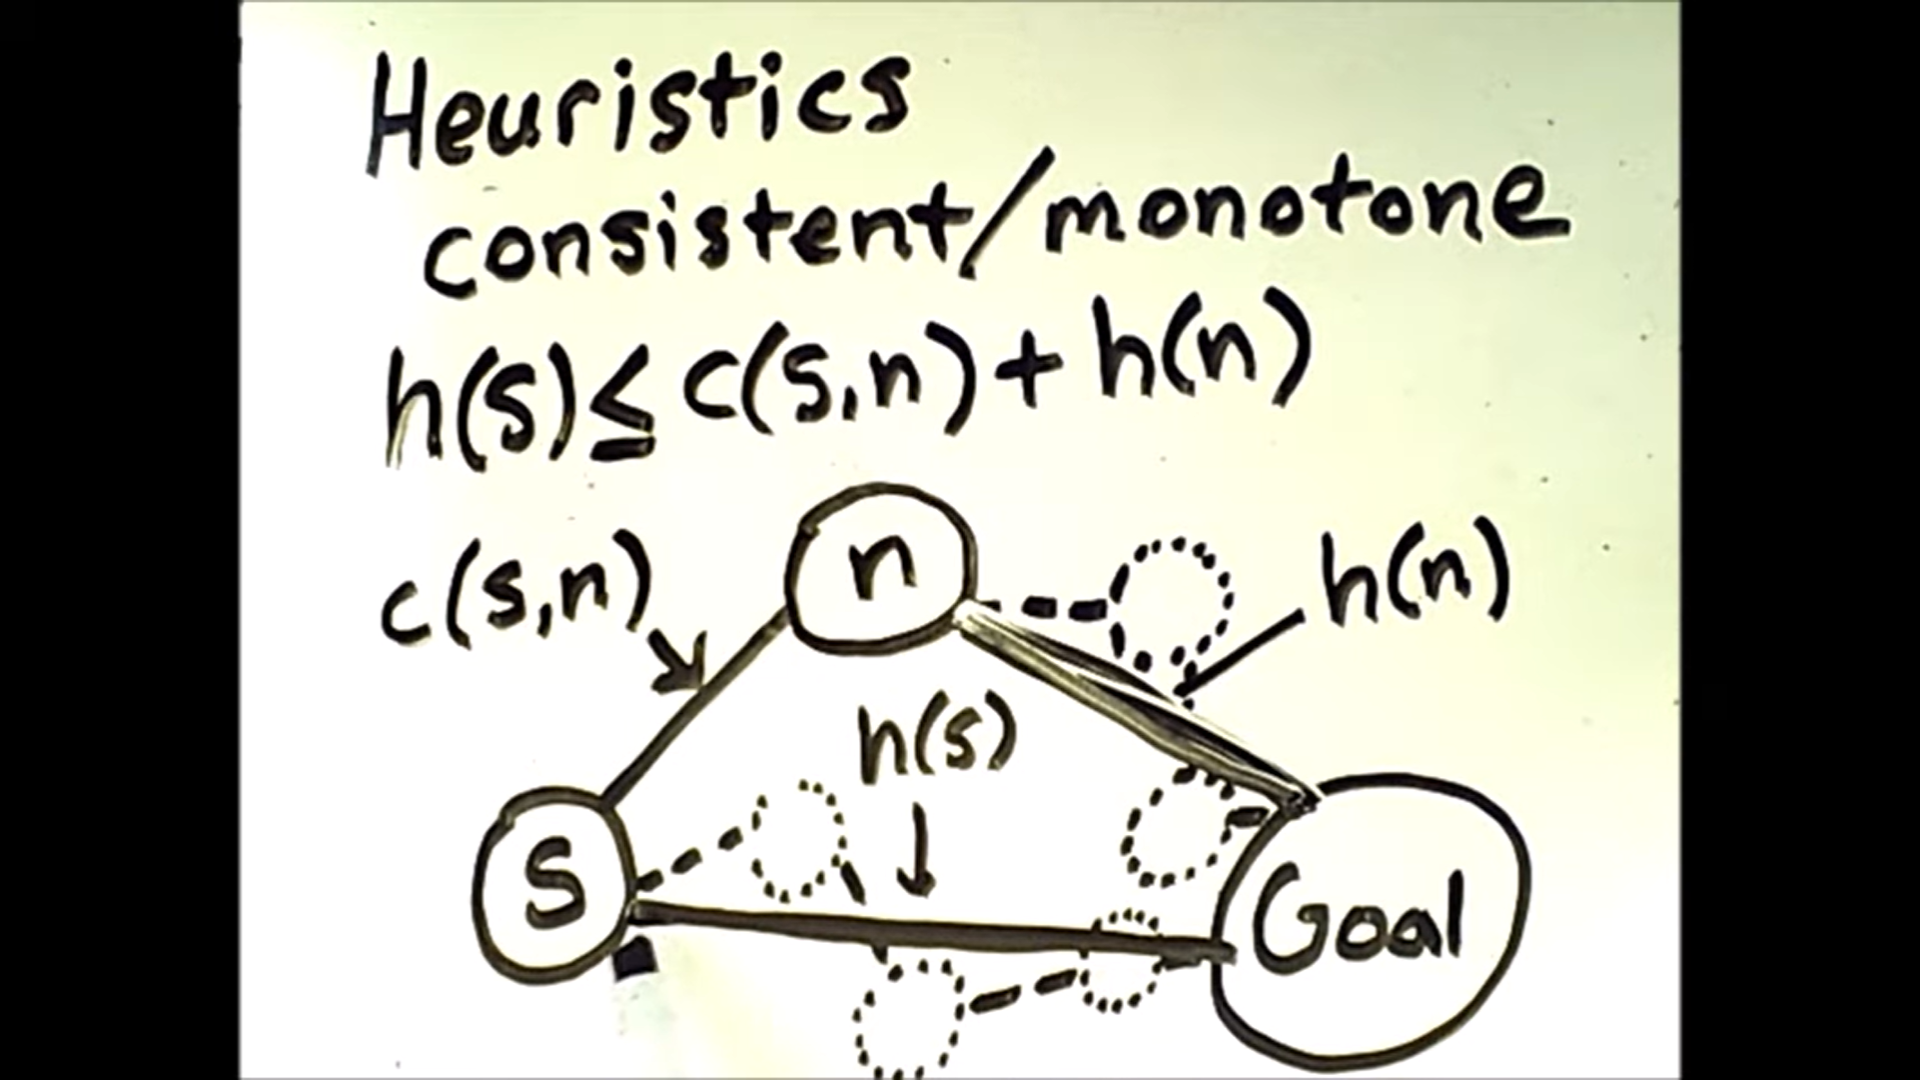 Heuristics
consistent/monotone
h(s)≤c(s,n)+h(n)
c(s,n)
n
h(n)
h(s)
S
Goal